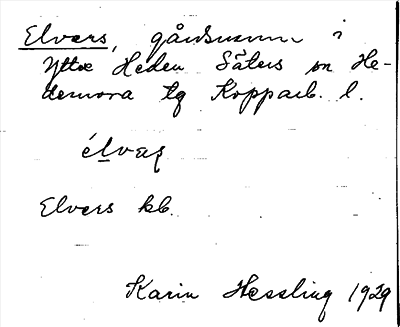 Elvers, gårdsnamn i
Yttre Heden Säters sn He-
demora tg Kopparb. l.
élvas
Elvers kb.
Karin Hessling 1929